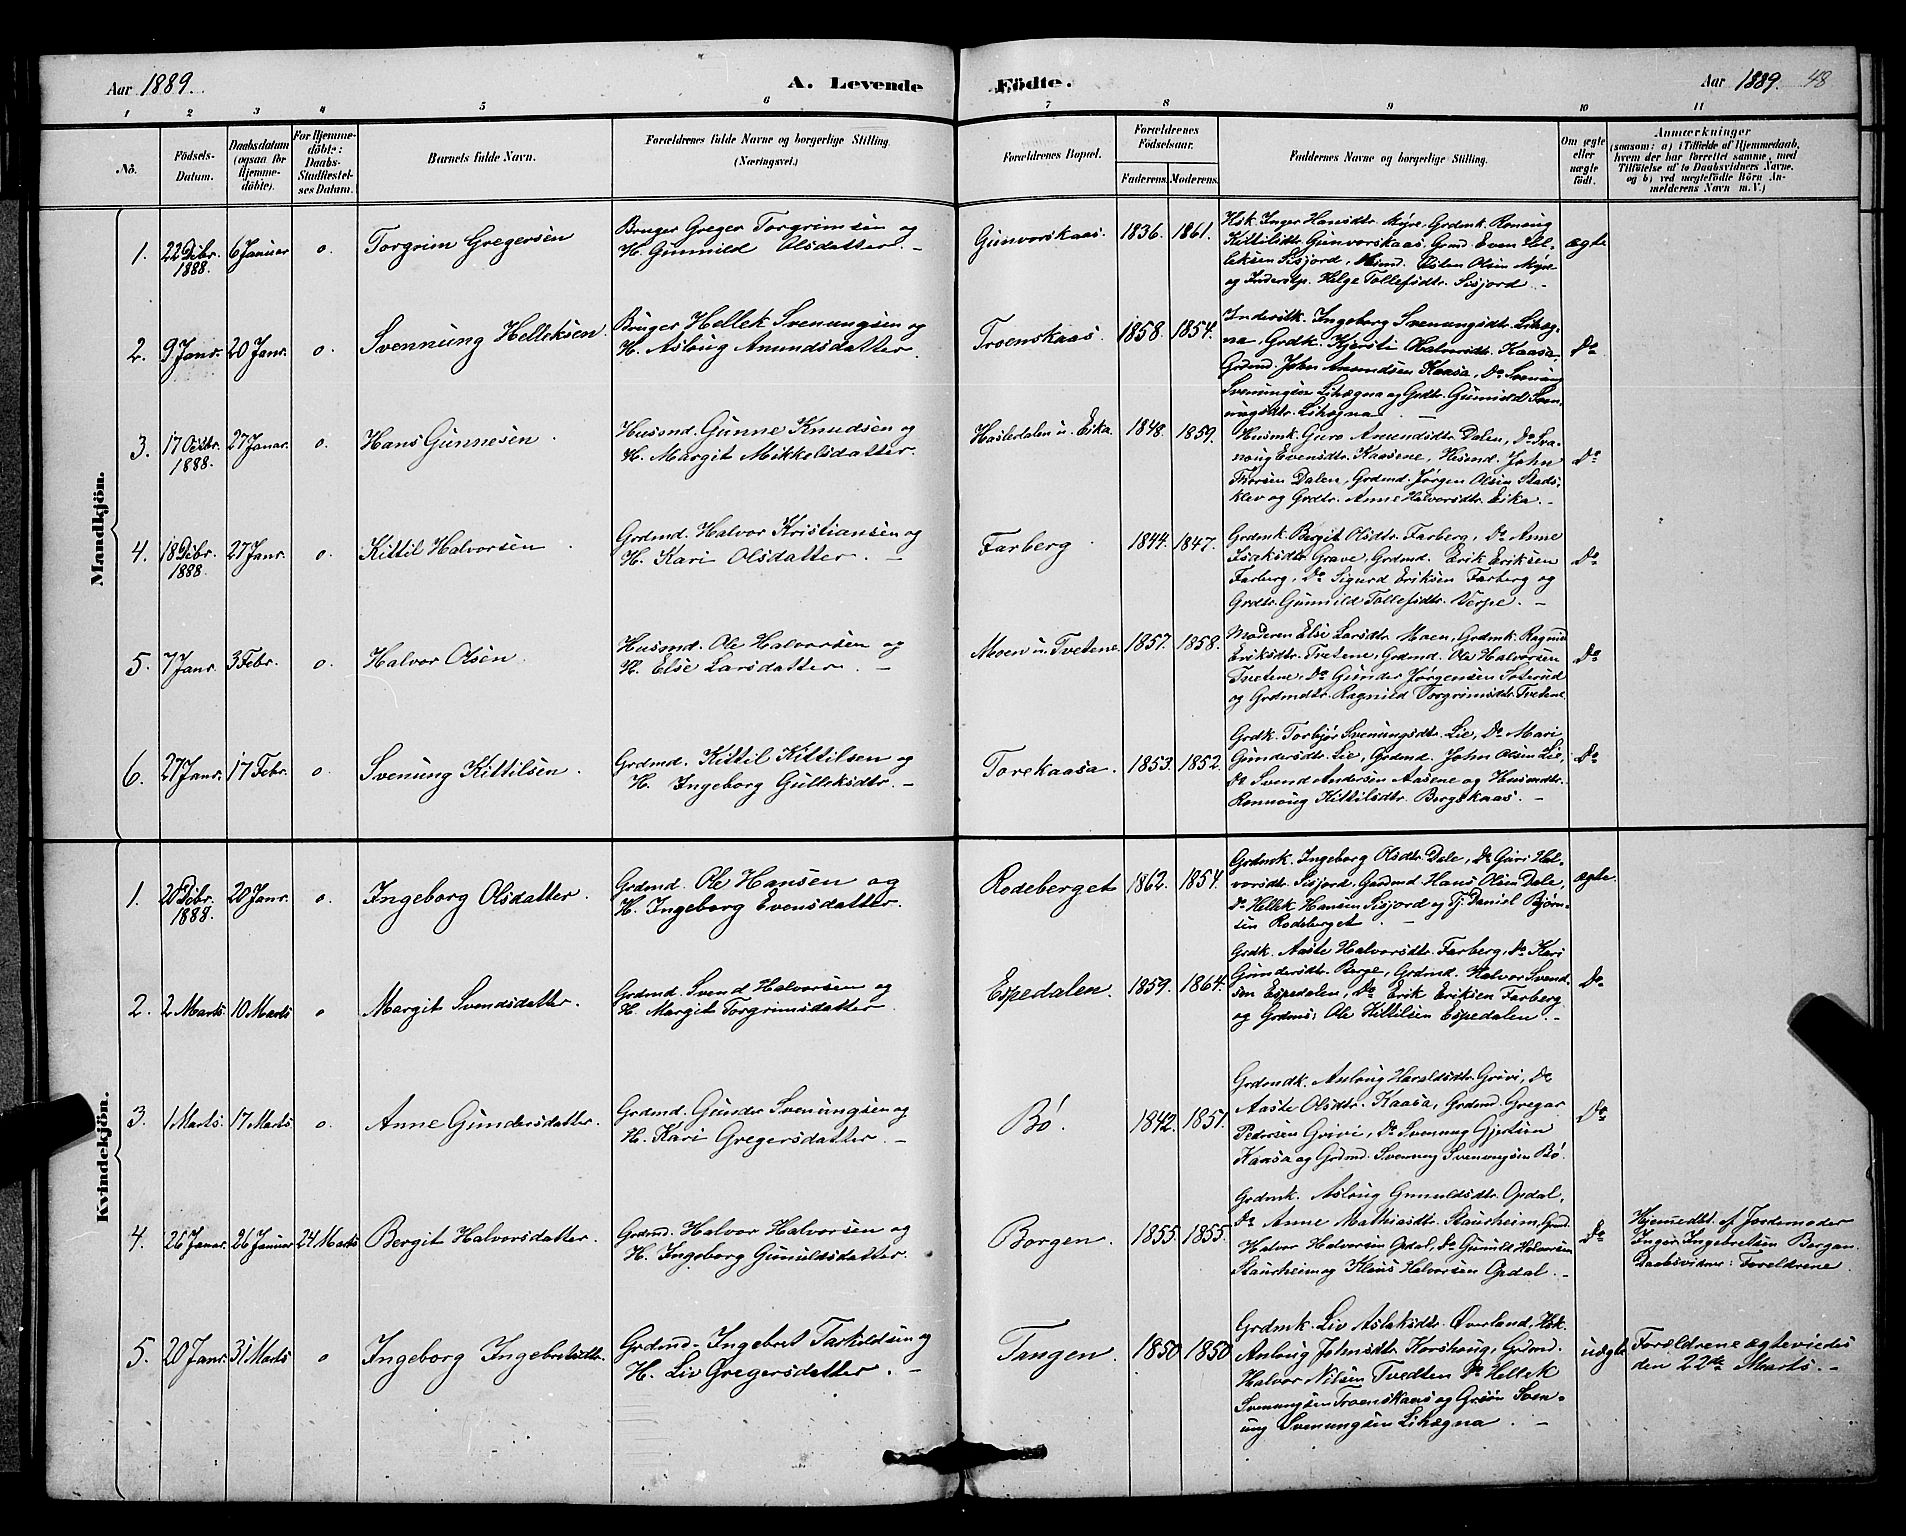 Aar 1889.
A. Levende
Födte.
Aar 1889. 48
1 2 3 4 5 6 7 8 9 10 11
No.
Födsels-
Datum.
Daabsdatum
(ogsaa for
Hjemme-
döbte).
For Hjemme-
döbte:
Daabs-
Stadfæstel-
ses Datum.
Barnets fulde Navn.
Forældrenes fulde Navne og borgerlige Stilling.
(Næringsvei.)
Forældrenes Bopæl.
Forældrenes
Födselsaar.
Faderens. Moderens.
Faddernes Navne og borgerlige Stilling.
Om ægte
eller
uægte
födt.
Anmærkninger
(saasom: a) i Tilfælde af Hjemmedaab,
hvem der har forrettet samme, med
Tilföielse af to Daabsvidners Navne,
og b) ved uægtefödte Börn An-
melderens Navn m. V.)
Mandkjön.
1. 22 Debr. 1888. 6 Januar o. Torgrim Gregersen
Bruger Greger Torgrimsen og
H. Gunnild Olsdatter. –
Gunvorskaas. 1836. 1861.
Hsk. Inger Hansdtr. Myre, Grdmk. Rönnug
Kittilsdtr. Gunvorskaas, Grmd. Even Hel-
leksen Sisjord, Husmd. Olsen Myre
og Inderstp. Helge Tollefsdtr. Sisjord –
ægte
2. 9 Janr. 20 Janr. o. Svennung Helleksen.
Bruger Hellek Svenungsen og
H. Aslaug Amundsdatter.
Troenskaas. 1858. 1854.
Inderstk. Ingeborg Svenungsdtr. Lihæg-
na, Grdk. Kjersti Halvorsdtr. Kaasa,
Grdmd. John Amundsen Kaasa, Do Svenung
Svenungsen Lihægna og Grdtr. Gunnild Sven-
ungsdtr. Lihægna –
Do
3. 17 Octbr. 1888. 27 Januar. o. Hans Gunnesen.
Husmd. Gunne Knudsen og
H. Margit Mikkelsdatter.
Hasledalen u. Eika. 1848. 1859.
Husmk. Guro Amundsdtr. Dalen, Do Sva-
noug Evensdtr. Kaasene, Husmd. John
Thorsen Dalen, Grdmd. Jörgen Olsen Stads-
klev og Grdtr. Anne Halvorsdtr. Eika. –
Do
4. 18 Debr. 1888. 27 Janr. o. Kittil Halvorsen
Grdmd. Halvor Kristiansen og
H. Kari Olsdatter. –
Farberg. 1844. 1847.
Grdmk. Bergit Olsdtr. Farberg, Do Anne
Isaksdtr. Grave, Grdmd. Erik Eriksen
Farberg, Do Sigurd Eriksen Farberg og
Grdtr. Gunnild Tollefsdtr. Verpe. –
Do
5. 7 Janr. 3 Febr. o. Halvor Olsen.
Husmd. Ole Halvorsen og
H. Else Larsdatter. –
Moen u. Tvetene. 1857. 1858.
Moderen Else Larsdtr. Moen, Grdmk. Ragnild
Eriksdtr. Tvetene, Grdmd. Ole Halvorsen
Tvetene, Do Gunder Jörgensen Toterud
og Grdmdtr. Ragnild Torgrimsdtr. Tvetene
Do
6. 27 Janr. 17 Febr. o. Svenung Kittilsen.
Grdmd. Kittil Kittilsen og
H. Ingeborg Gulleksdtr. –
Torekaasa. 1853. 1852.
Grdk. Torbjør Svenungsdtr. Lie, Do Mari
Gundersdtr. Lie, Grdmd. John Olsen Lie,
Do Svend Andersen Aasene og Husmdtr.
Rønnoug Kittilsdtr. Bergskaas. –
Do
Kvindekjön.
1. 20 Debr. 1888. 20 Janr. o. Ingeborg Olsdatter.
Grdmd. Ole Hansen og
H. Ingeborg Evensdatter.
Rodeberget 1862. 1854.
Grdmk. Ingeborg Olsdtr. Dale, Do Guri Hal-
vorsdtr. Sisjord, Grdmd Hans Olsen Dale,
Do Hellek Hansen Sisjord og Tj. Daniel Bjørn-
sen Rodeberget. –
ægte.
2. 2 Marts. 10 Marts o Margit Svendsdatter.
Grdmd. Svend Halvorsen og
H. Margit Torgrimsdatter.
Espedalen. 1859. 1864.
Grdk. Aaste Halvorsdtr. Farberg, Do Kari
Gundersdtr. Berge, Grdmd. Halvor Svend-
sen Espedalen, Do Erik Eriksen Farberg
og Grdms. Ole Kittilsen Espedalen. –
Do
3. 1 Marts. 17 Marts o. Anne Gundersdatter.
Grdmd. Gunder Svenungsen og
H. Kari Gregersdatter. –
Bö. 1842. 1851.
Grdmdk. Aslaug Haraldsdtr. Grivi, Do
Aaste Olsdtr. Kaasa, Grdmd. Gregar
Pedersen Grivi, Do Svenung Gjertsen
Kaasa og Grdmd. Svenung Svenungsen Bö.
Do
4. 25 Januar. 26 Januar 24 Marts Bergit Halvorsdatter.
Grdmd. Halvor Halvorsen og
H. Ingeborg Gunuldsdatter.
Borgen. 1855. 1855.
Grdmk. Aslaug Gunuldsdtr. Opdal,
Do Anne Mathiasdtr. Staurheim, Grmd.
Halvor Halvorsen Opdal, Do Gunuld Halvorsen
Staurheim og Klaus Halvorsen Opdal. –
Do
Hjemmedbt. af Jordemoder
Inger Ingebretsen Borgan.
Daabsvidner: Foreldrene
5. 20 Janr. 31 Marts o Ingeborg Ingebretsdtr.
Grdmd. Ingebret Tarkildsen og
H. Liv Gregersdatter. –
Tangen. 1850 1850
Grdmk. Liv Aslaksdtr. Øverland, Hsk.
Aslaug Johnsdtr. Korshoug, Grdmd.
Halvor Nilsen Tvedten, Do Hellek
Svenungsen Troenskaas og Grsøn Sven-
ung Svenungsen Lihægna. –
uægte
Forældrene ægteviedes
den 22de Marts. –